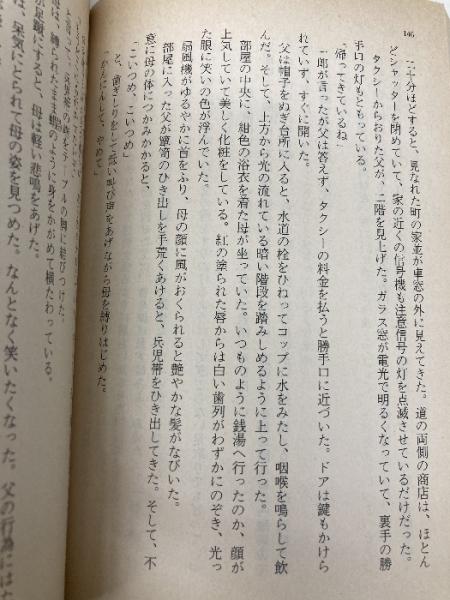 146
二十分ほどすると、見なれた町の家並が車窓の外に見えてきた。道の両側の商店は、ほとん
どシャッターを閉めていて、家の近くの信号機も注意信号の灯を点滅させているだけだった。
タクシーからおりた父が、二階を見上げた。ガラス窓が電光で明るくなっていて、裏手の勝
手口の灯もともっている。
「帰ってきているね」
一郎が言ったが父は答えず、タクシーの料金を払うと勝手口に近づいた。ドアは鍵もかけら
れていず、すぐに開いた。
父は帽子をぬぎ台所に入ると、水道の栓をひねってコップに水をみたし、咽喉を鳴らして飲
んだ。そして、上方から光の流れている暗い階段を踏みしめるように上って行った。
部屋の中央に、紺色の浴衣を着た母が坐っていた。いつものように銭湯へ行ったのか、顔が
上気していて美しく化粧をしている。紅の塗られた唇からは白い歯列がわずかにのぞき、光っ
た眼に笑いの色が浮んでいた。
扇風機がゆるやかに首をふり、母の顔に風がおくられると艶やかな髪がなびいた。
部屋に入った父が簞笥のひき出しを手荒くあけると、兵児帯をひき出してきた。そして、不
意に母の体につかみかかると、
「こいつめ、こいつめ」
と、歯ぎしりをして低い叫び声をあげながら母を縛りはじめた。
「かんにんして、やめて」
ブルの脚に結びつけた。
縛られたまま蝦のように身をかがめて横たわっている。
足蹴にすると、母は軽い悲鳴をあげた。
は、呆気にとられて母の姿を見つめた。なんとなく笑いたくなった。父の行為には